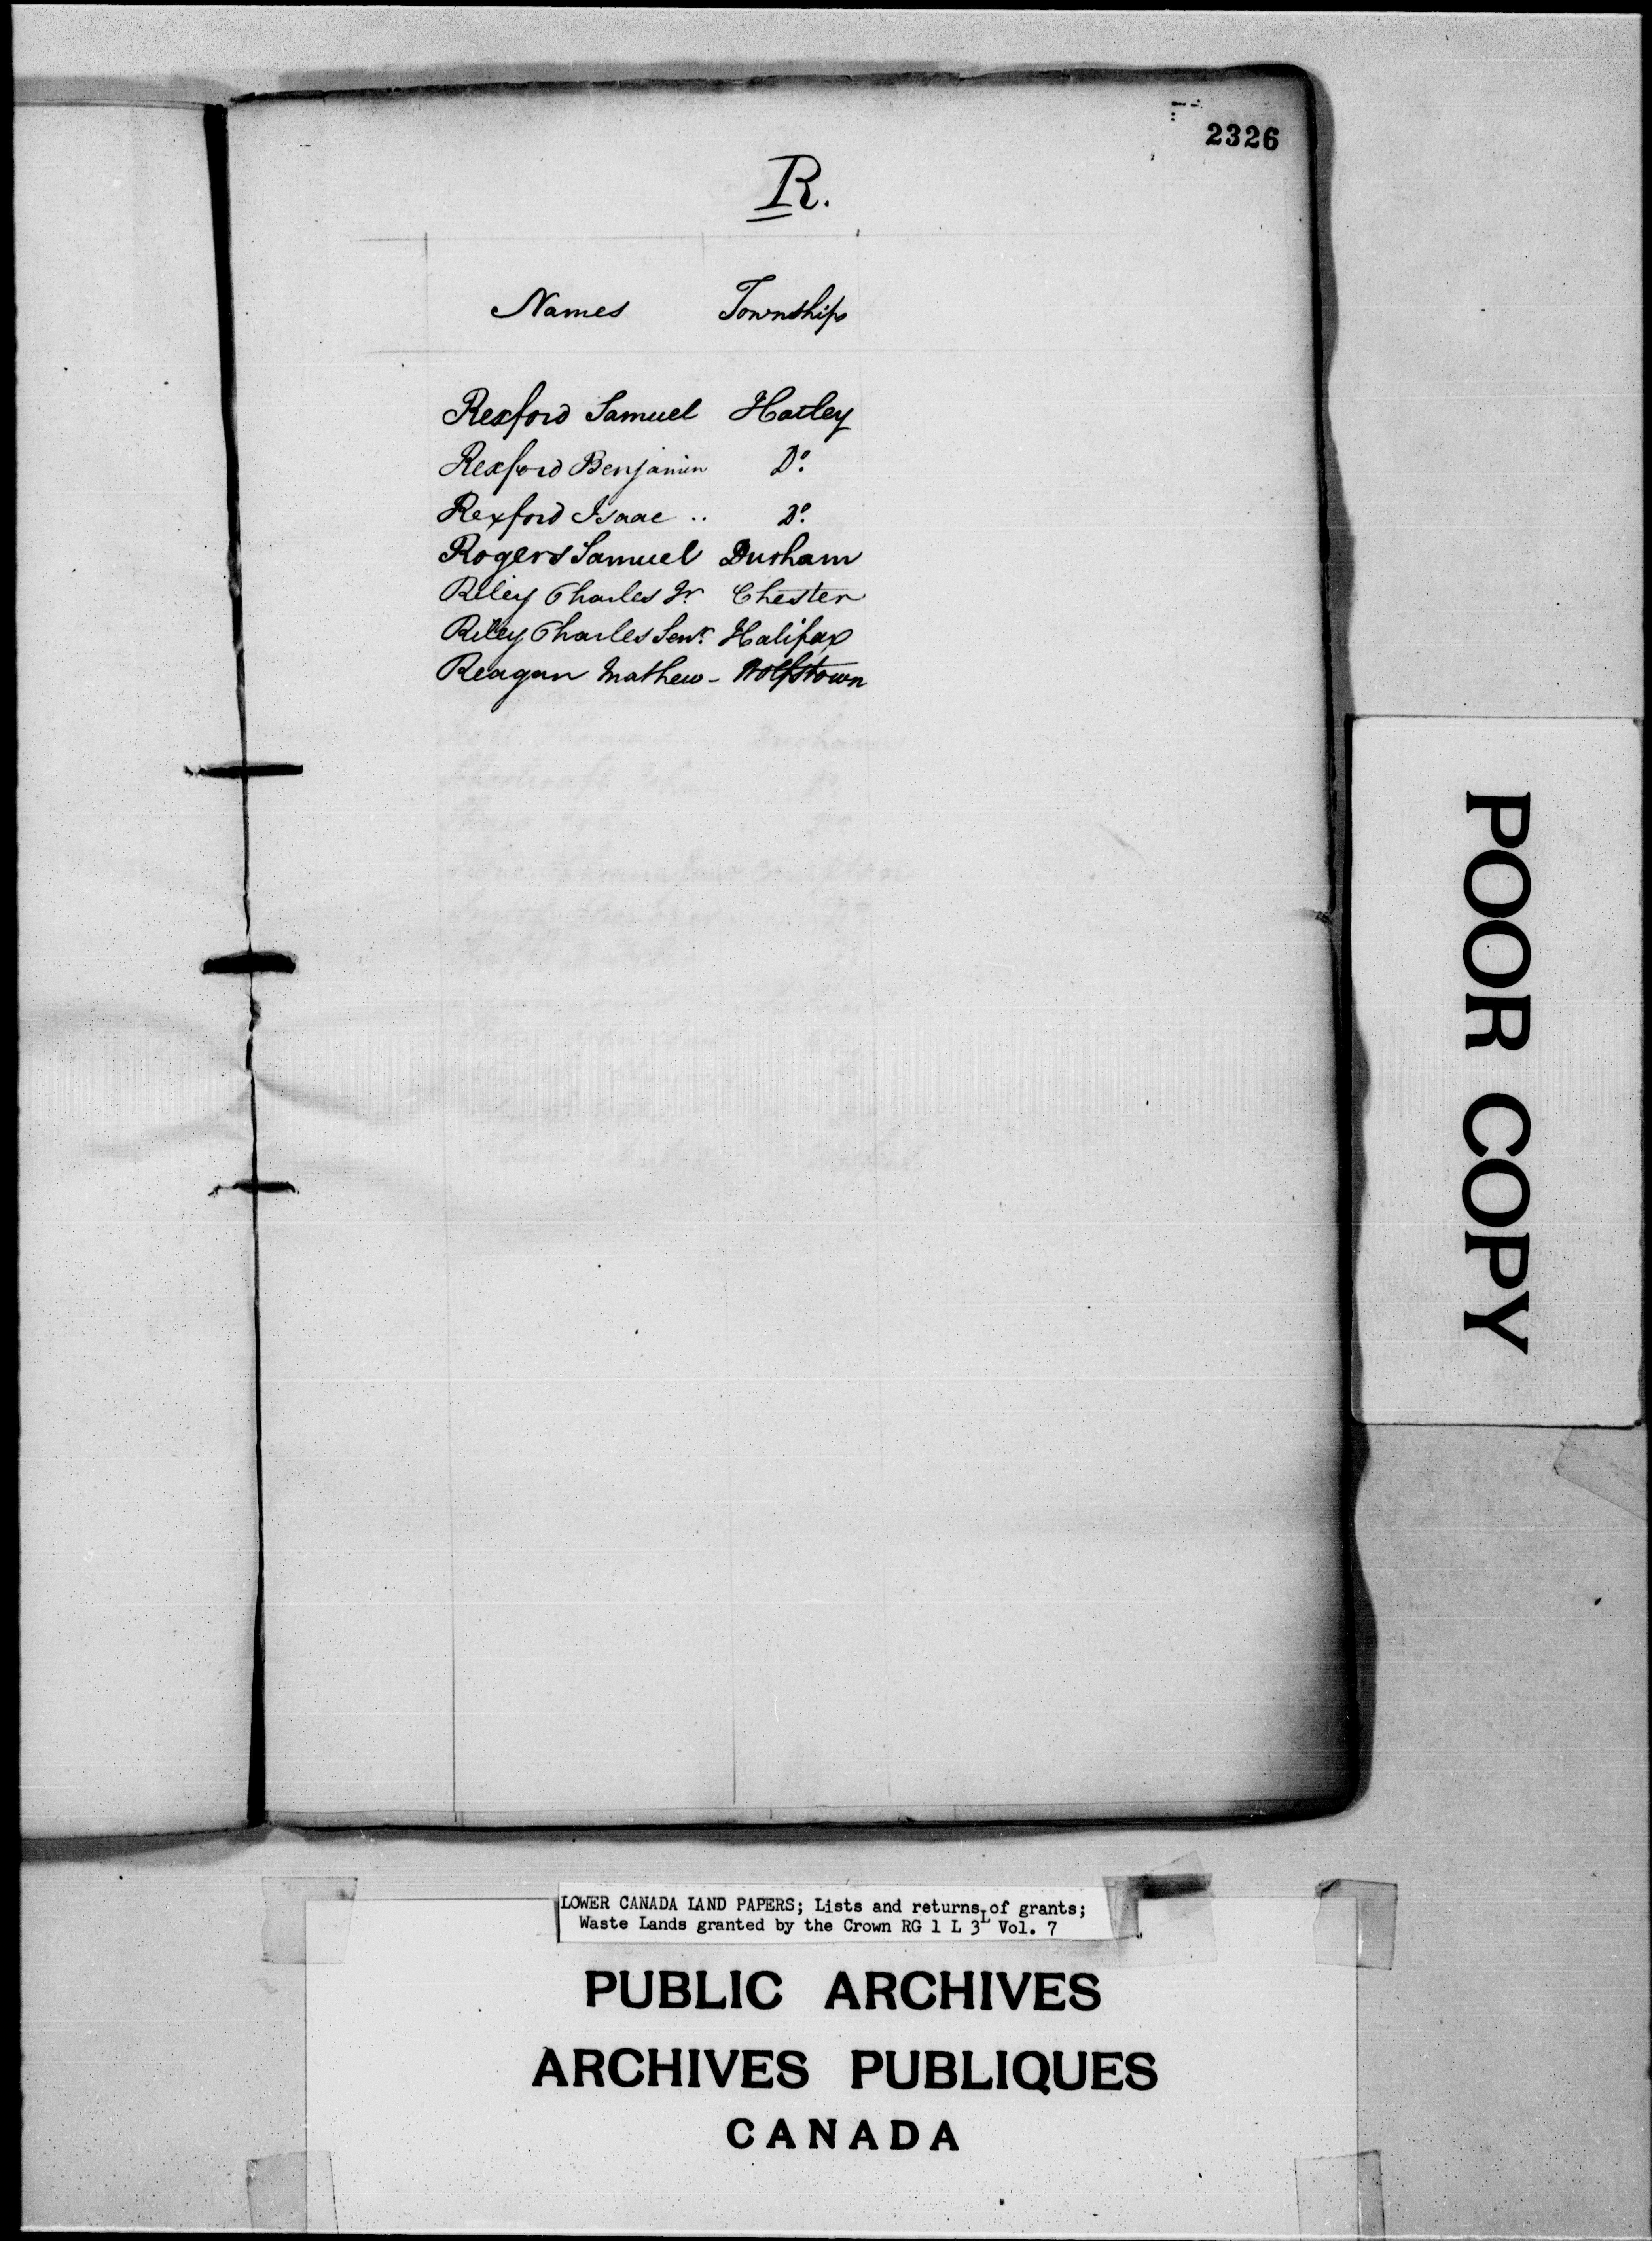 2326
R.
Names Townships
Rexford Samuel Hatley
Rexford Benjamin Do.
Rexford Isaac .. Do.
Rogers Samuel Durham
Riley Charles Jr Chester
Riley Charles Senr. Halifax
Reagan Mathew - Wolfstown
POOR COPY
LOWER CANADA LAND PAPERS; Lists and returns of grants;
Waste Lands granted by the Crown RG 1 L 3L Vol. 7
PUBLIC ARCHIVES
ARCHIVES PUBLIQUES
CANADA